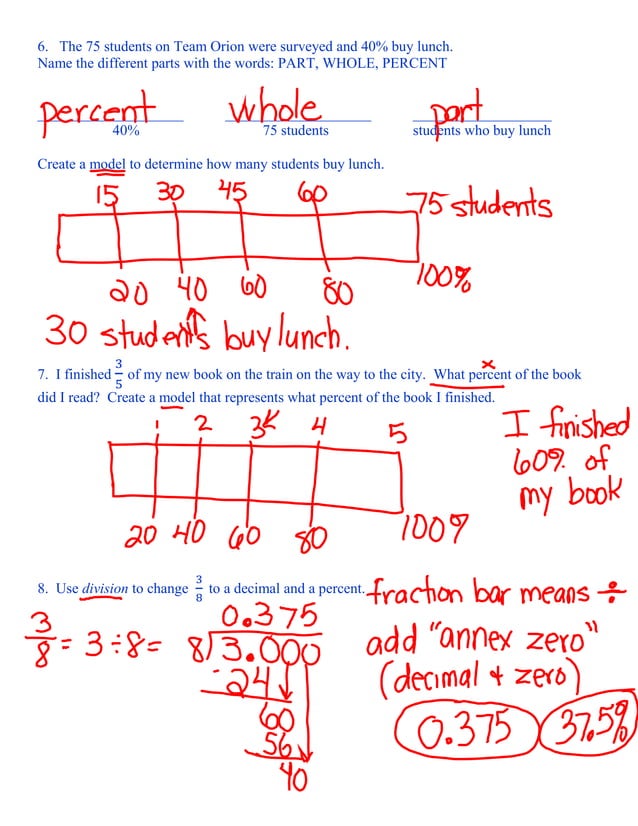 6. The 75 students on Team Orion were surveyed and 40% buy lunch.
Name the different parts with the words: PART, WHOLE, PERCENT
percent whole part
40% 75 students students who buy lunch
Create a model to determine how many students buy lunch.
15 30 45 60 75 students
20 40 60 80 100%
30 students buy lunch.
7. I finished 3/5 of my new book on the train on the way to the city. What percent of the book
did I read? Create a model that represents what percent of the book I finished.
1 2 3 4 5
20 40 60 80 100%
I finished
60% of
my book
8. Use division to change 3/8 to a decimal and a percent.
fraction bar means ÷
0.375
3/8 = 3÷8= 8)3.000
-24
60
56
40
add "annex zero"
(decimal & zero)
0.375 37.5%